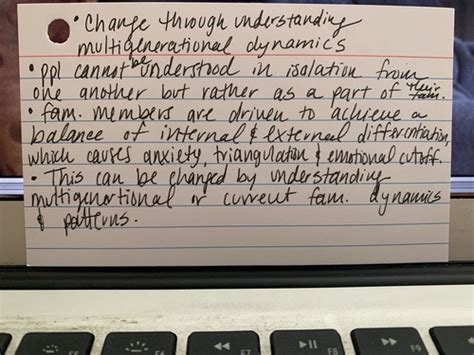 • Change through understanding
multigenerational dynamics
• ppl cannot be understood in isolation from
one another but rather as a part of their fam.
• fam. members are driven to achieve a
balance of internal & external differentiation,
which causes anxiety, triangulation & emotional cutoff.
• This can be changed by understanding
multigenertional or current fam. dynamics
& patterns.
F5
F6
F7
F8
F9